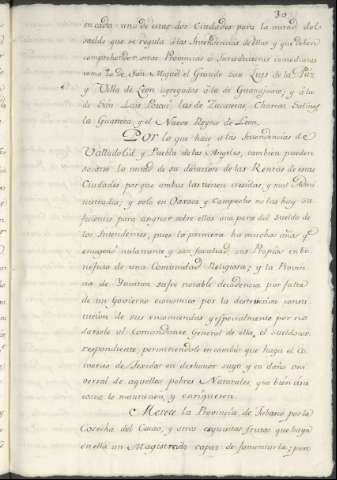 30
en cada una de estas dos Ciudades para la mitad del
sueldo que se regula á las Intendencias de ellas y que deben
comprehender otras Provincias ó Jurisdiciones inmediatas
como la de San Miguel el Grande San Luis de la Paz
y Villa de Leon agregadas á la de Guanajuato; y á la
de San Luis Potosí, las de Zacatecas, Charcas, Salinas
la Guasteca y el Nuevo Reyno de Leon.
Por lo que hace á las Intendencias de
Valladolid, y Puebla de los Angeles, tambien pueden
sacarse la mitad de su dotacion de las Rentas de estas
Ciudades porque ambas las tienen crecidas, y mal Admi
nistradas; y solo en Oaxaca y Campeche no las hay su
ficientes para asignar sobre ellas una parte del sueldo de
los Intendentes, pues la primera ha muchos años q.e
enagenó nulamente y sin facultad sus Propios en be
neficio de una Comunidad Religiosa; y la Provin
cia de Yucatan sufre notable decadencia por falta
de un Govierno economico por la destructiva consti
tucion de sus encomiendas y especialmente por no
darsele al Comandante General de ella, el sueldo cor
respondiente, permitiendole en cambio que haga el co
mercio de Texidos en deshonor suyo y en daño uni
versal de aquellos pobres Naturales que bien á su
costa lo mantienen, y enriquecen.
Merece la Provincia de Tabasco por la
Cosecha del Cacao, y otros exquisitos frutos que haya
en ella un Magistrado capaz de fomentarla; pero